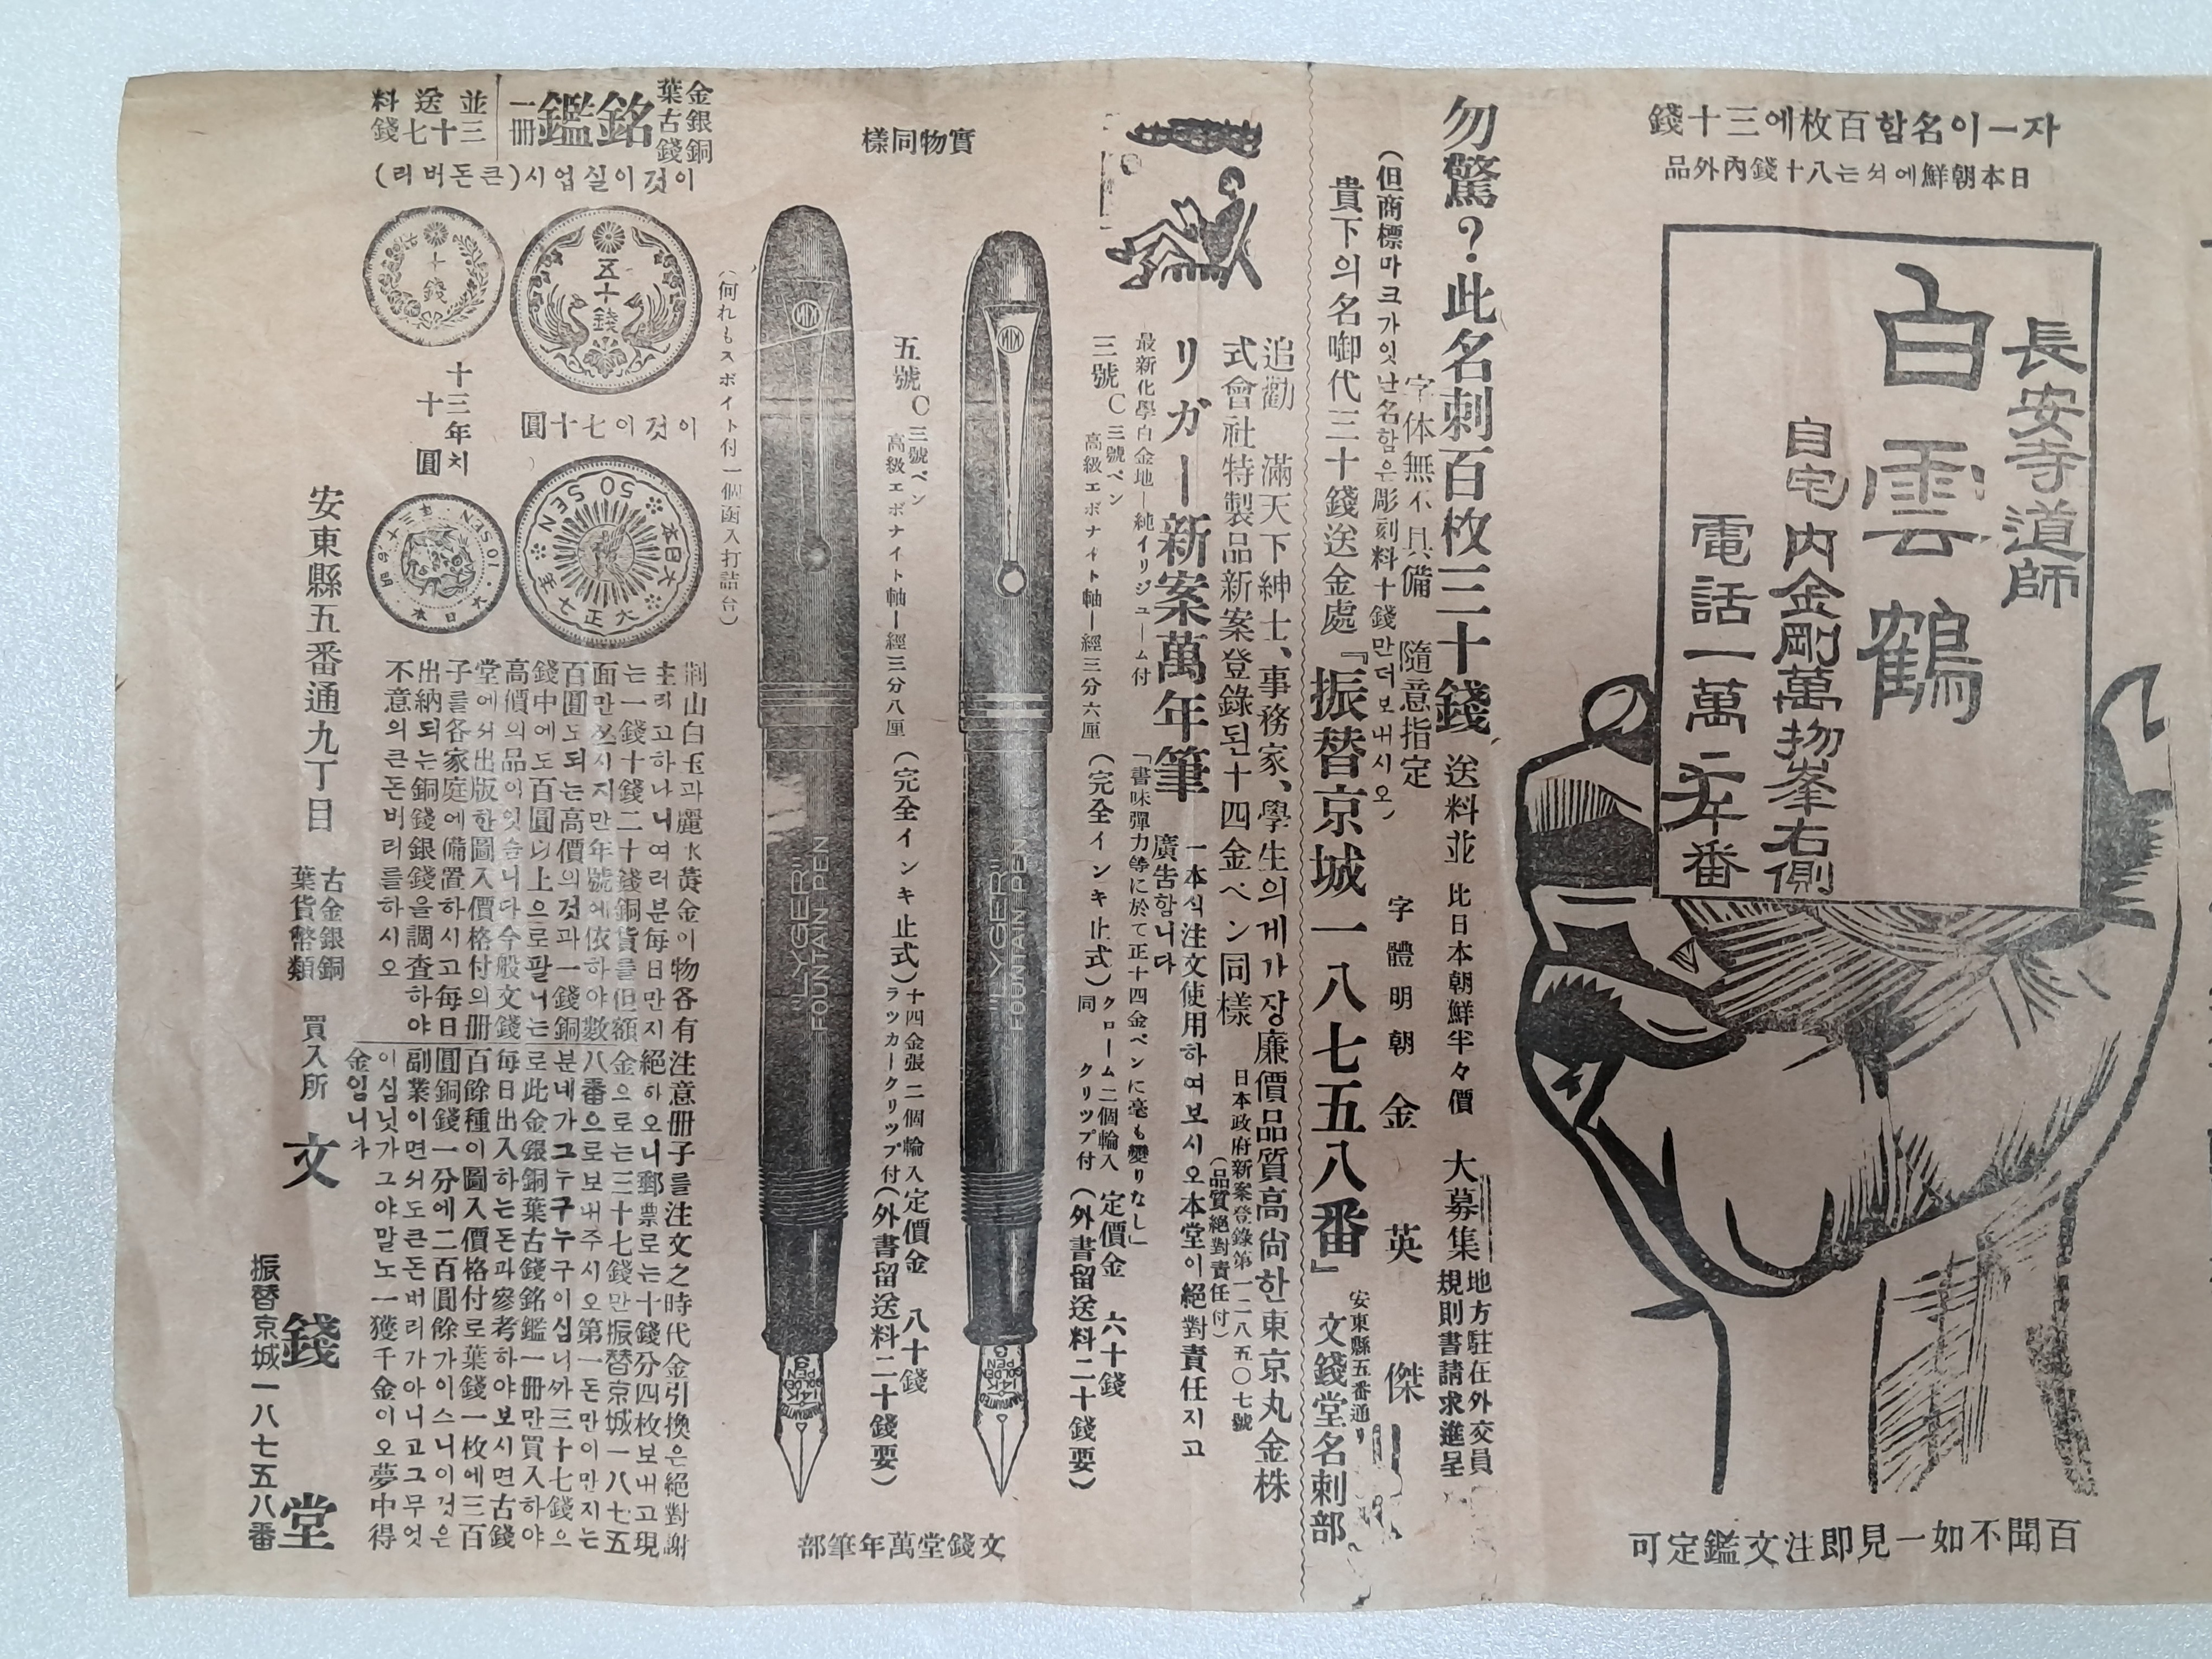 자ㅡ이名함百枚에三十錢
日本朝鮮에서는八十錢內外品
長安寺道師
白雲鶴
自宅内金剛萬物峯右側
電話一萬二千年番
百聞不如一見即注文鑑定可
勿驚?此名刺百枚三十錢 送料並 比日本朝鮮半々價 大募集 地方駐在外交員
規則書請求進呈
字体無不具備 隨意指定
(但商標마크가잇난名함은彫刻料十錢만더보내시오)
字體明朝 金英傑
貴下의名啣代三十錢送金處『振替京城一八七五八番』
安東縣五番通
文錢堂名刺部
追勸 滿天下紳士、事務家、學生의게가장廉價品質高尙한東京丸金株
式會社特製品新案登錄된十四金ペン同樣
日本政府新案登錄第一二八五〇七號
(品質絕對責任付)
リガー新案萬年筆
一本식注文使用하여보시오本堂이絕對責任지고
廣告함니다
最新化學白金地ー純イリジューム付
「書味彈力等に於て正十四金ペンに毫も變りなし」
三號C三號ペン
高級エボナイト軸ー經三分六厘
(完全インキ止式)
クローム二個輪入
同 クリップ付
定價金 六十錢
(外書留送料二十錢要)
實物同樣
"LYGER"
FOUNTAIN PEN
WARRANTED
14K
GOLDEN
PEN
五號C三號ペン
高級エボナイト軸ー經三分八厘
(完全インキ止式)
十四金張二個輪入
ラッカークリップ付
定價金 八十錢
(外書留送料二十錢要)
"LYGER"
FOUNTAIN PEN
WARRANTED
14K
GOLDEN
PEN
(何れもスポイト付一個函入打詰台)
文錢堂萬年筆部
金銀銅
葉古錢
銘鑑
一冊
並三
送十
料七錢
이것이실업시(큰돈버리)
五十錢
十錢
이것이七十圓
十三年치
十圓
大日本 50 SEN 大正七年
大日本 10 SEN
荊山白玉과麗水黃金이物各有
主라고하나니여러분每日만지
는一錢十錢二十錢銅貨를但額
面만쓰시지만年號에依하야數
百圓도되는高價의것과一錢銅
錢中에도百圓以上으로팔니는
高價의品이잇슴니다今般文錢
堂에서出版한圖入價格付의册
子를各家庭에備置하시고每日
出納되는銅錢銀錢을調査하야
不意의큰돈버리를하시오
注意册子를注文之時代金引換은絕對謝
絕하오니郵票로는十錢分四枚보내고現
金으로는三十七錢만振替京城一八七五
八番으로보내주시오第一돈만이만지는
분네가그누구누구이심니까三十七錢으
로此金銀銅葉古錢銘鑑一冊만買入하야
每日出入하는돈과參考하야보시면古錢
百餘種이圖入價格付로葉錢一枚에三百
圓銅錢一分에二百圓餘가이스니이것은
副業이면서도큰돈버리가아니고그무엇
이심닛가그야말노一獲千金이오夢中得
金임니다
安東縣五番通九丁目
古金銀銅
葉貨幣類
買入所
文錢堂
振替京城一八七五八番